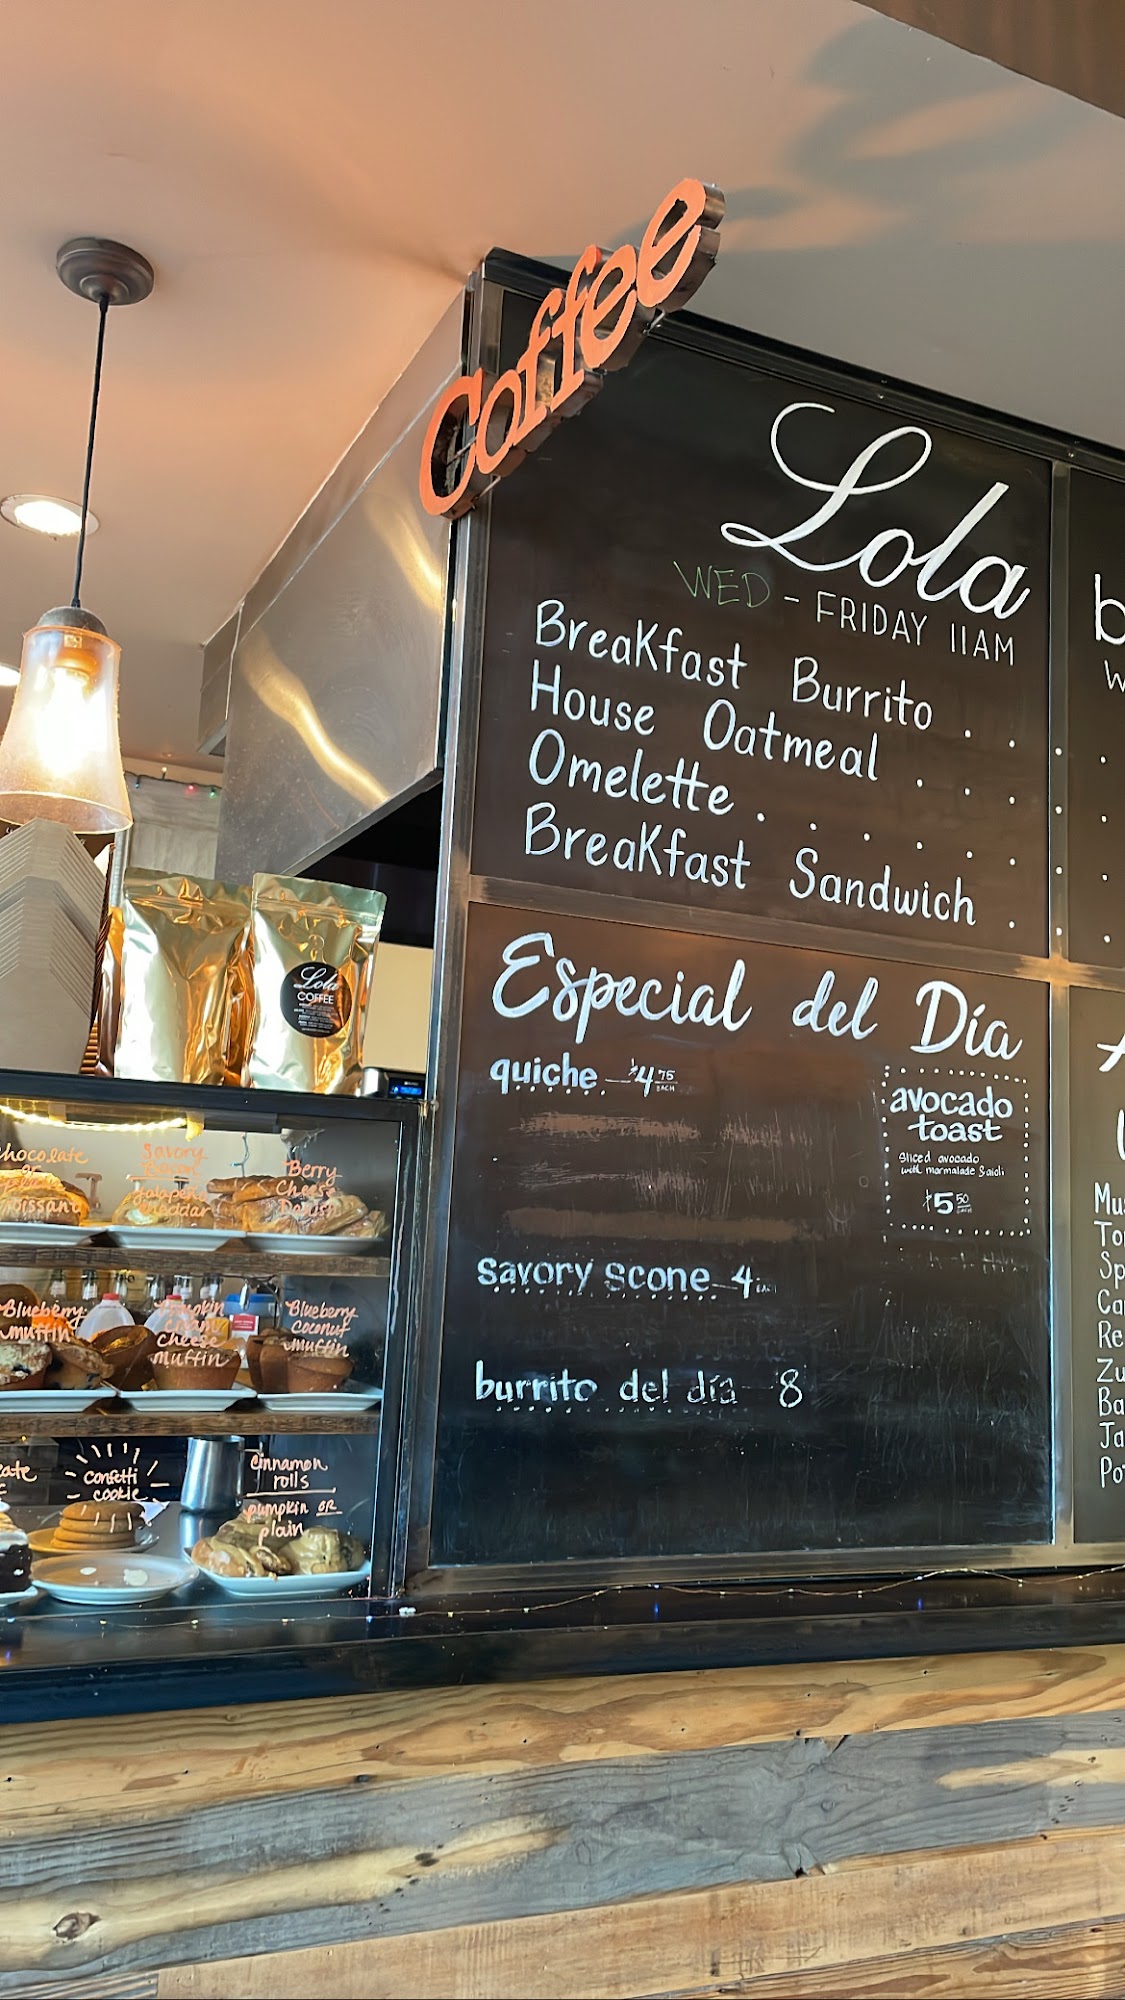 Coffee
Lola
WED - FRIDAY 11AM
Breakfast Burrito . . . .
House Oatmeal . . . . .
Omelette . . . . . . .
Breakfast Sandwich . . .
Especial del Día
quiche - $4 75 EACH
avocado
toast
sliced avocado
with marmalade & aioli
$5 50
savory scone - 4
burrito del día - 8
Lola
COFFEE
chocolate
or
croissant
Savory
Bacon
Jalapeño
Cheddar
Berry
Cheese
Danish
Blueberry
muffin
Pumpkin
cream
cheese
muffin
Blueberry
Coconut
muffin
confetti
cookie
cinnamon
rolls
pumpkin OR
plain
b
W
Mus
To
Sp
Ca
Re
Zu
Ba
Ja
Po